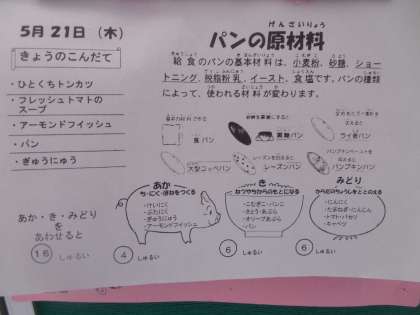 5月21日（木）
きょうのこんだて
・ひとくちトンカツ
・フレッシュトマトの
スープ
・アーモンドフイッシュ
・パン
・ぎゅうにゅう
あか・き・みどり
を
あわせると
16 しゅるい
げんざいりょう
パンの原材料
給食のパンの基本材料は、小麦粉、砂糖、ショー
トニング、脱脂粉乳、イースト、食塩です。パンの種類
によって、使われる材料が変わります。
食パン
黒糖パン
ライ麦パン
大型コッペパン
レーズンパン
パンプキンパン
あか
ち・にく・ほねをつくる
・けいにく
・ぶたにく
・ぎゅうにゅう
・アーモンドフィッシュ
4 しゅるい
き
ねつやちからのもとになる
・こむぎこ・パンこ
・さとう・あぶら
・オリーブあぶら
・パン
6 しゅるい
みどり
からだのちょうしをととのえる
・にんにく
・たまねぎ・にんじん
・トマト・パセリ
・キャベツ
6 しゅるい